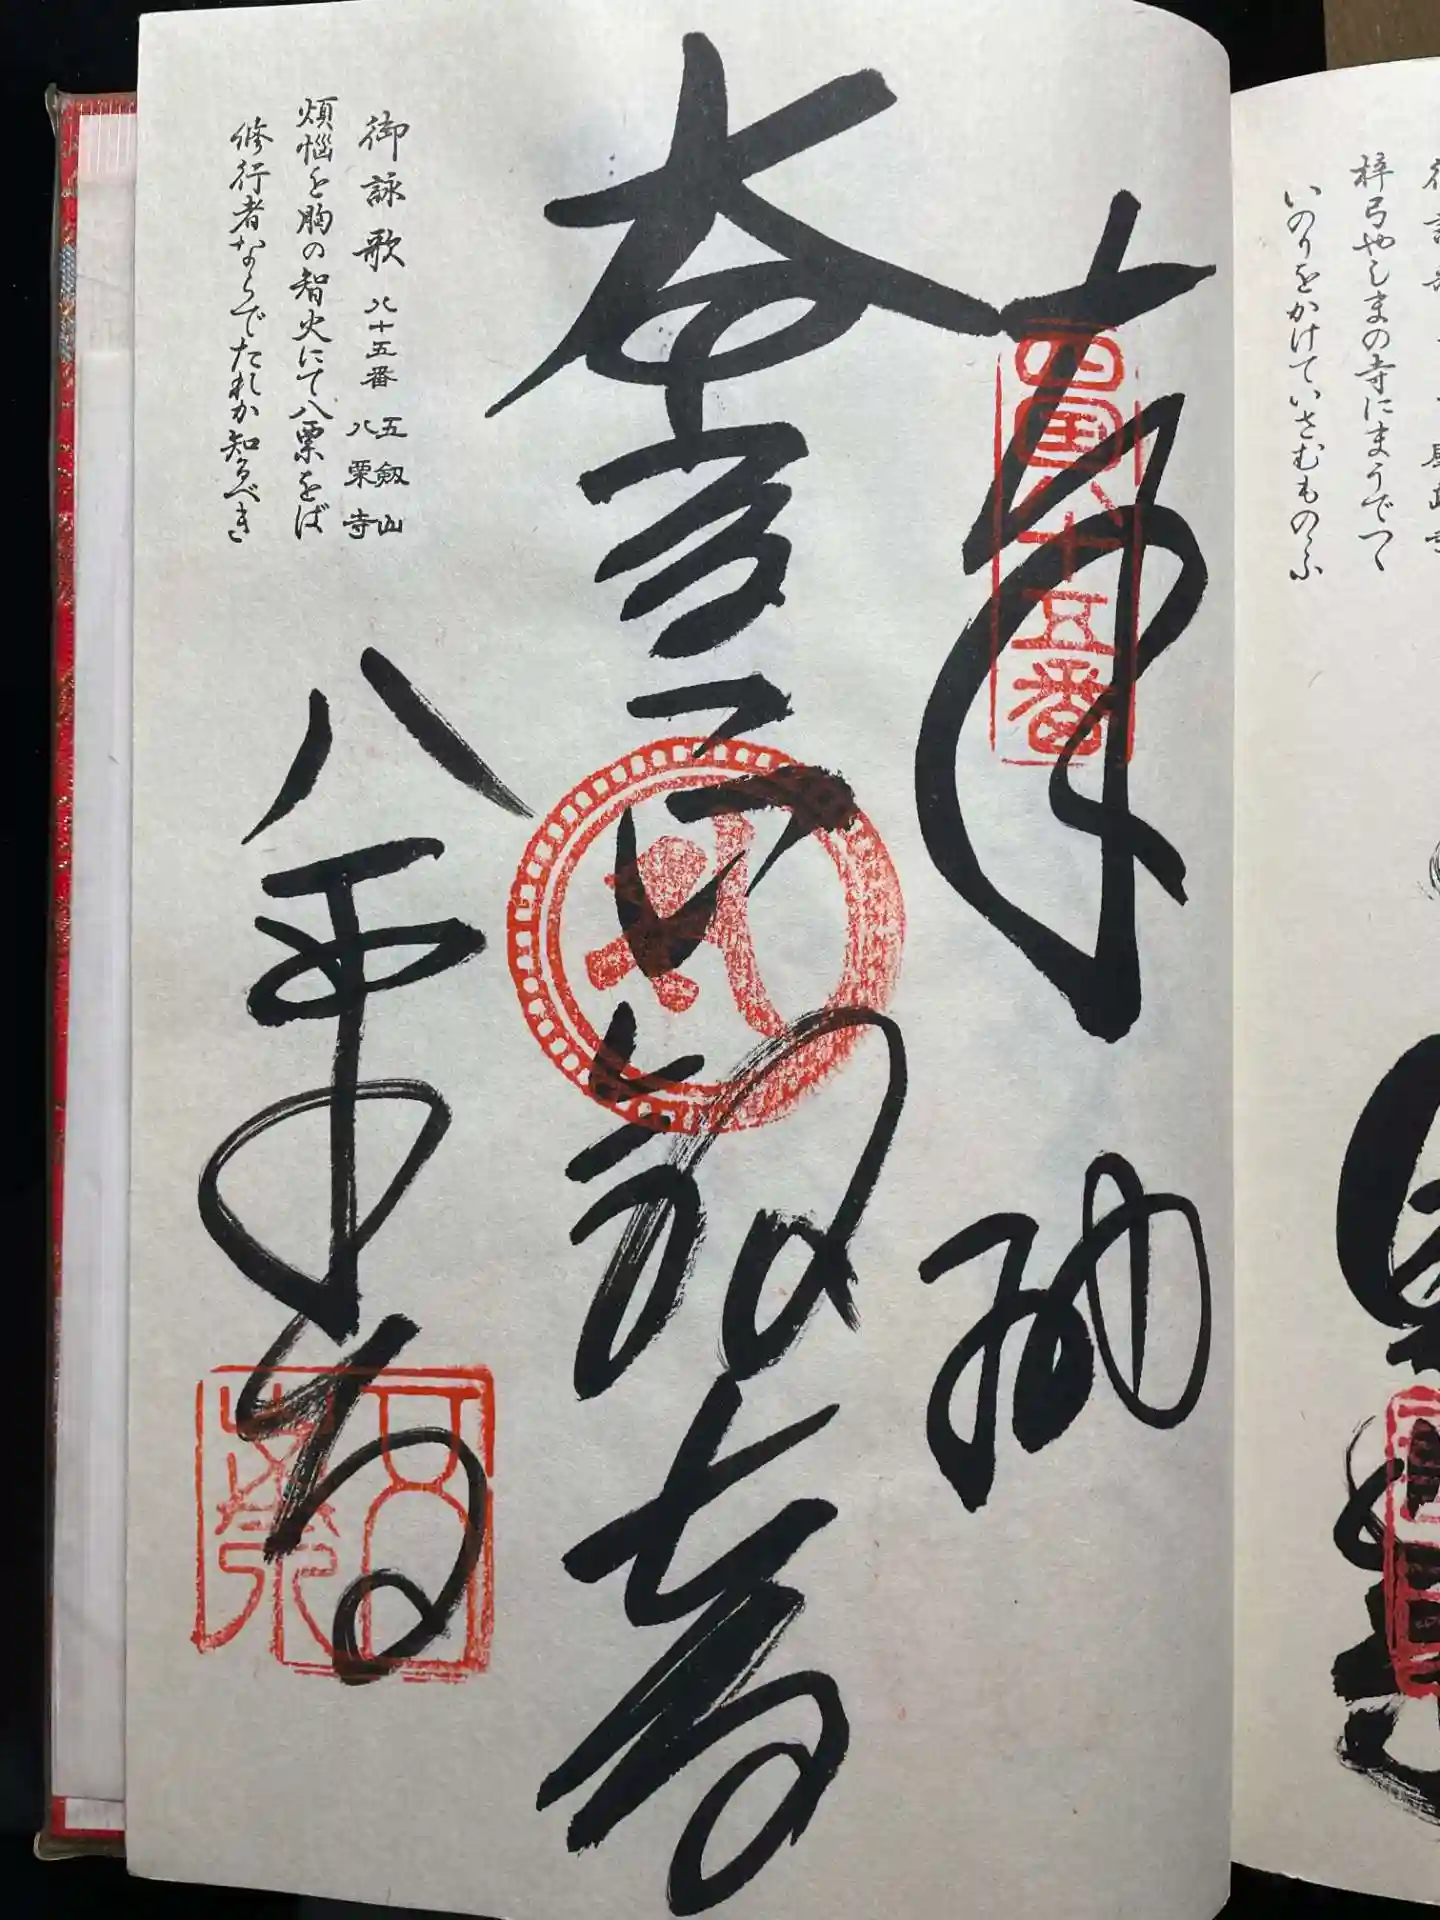 梓弓やしまの寺にまうでつゝ
いのりをかけていさむものゝふ
奉納
四國八十五番
本尊聖観音
八栗寺
御詠歌 八十五番 五劔山
八栗寺
煩悩を胸の智火にて八栗をば
修行者ならでたれか知るべき